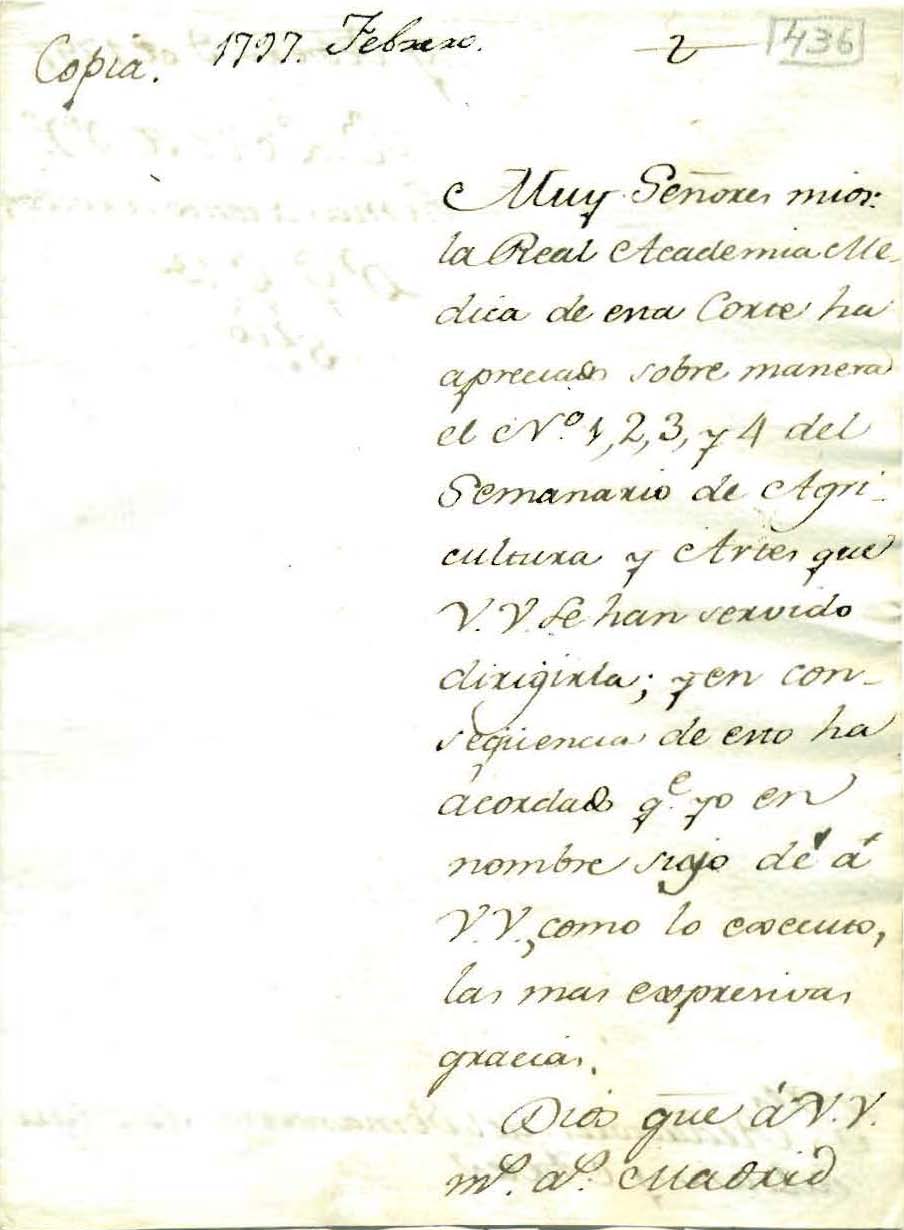 Copia. 1797. Febrero. 2 436
Muy Señores mios:
la Real Academia Me-
dica de esta Corte ha
apreciado sobre manera
el Nº 1, 2, 3, y 4 del
Semanario de Agri-
cultura y Artes que
V.V. se han servido
dirigirla; y en con-
seqüencia de esto ha
acordado qe. yo en
nombre suyo dé á
V.V., como lo executo,
las mas expresivas
gracias.
Dios gue á V.V.
ms. as. Madrid